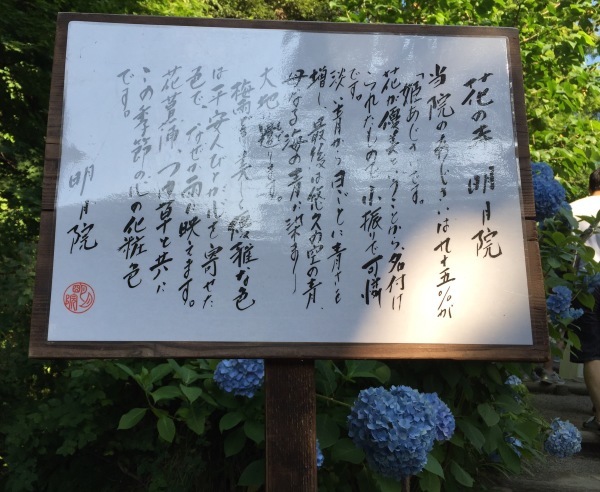 花の寺 明月院
当院のあじさいは九十五%が
「姫あじさい」です。
花が優美ということから名付け
られたもので小振で可憐
です。
淡い青から日いとに青さを
増し、最後は悠久の空の青、
母なる海の青に染まり
大地に還ります。
梅雨どきの美しく優雅な色
は平安人びとが心を寄せた
色で、なぜか雨に映えます。
花菖蒲、つゆ草と共に
この季節の心の化粧色
です。
明月院